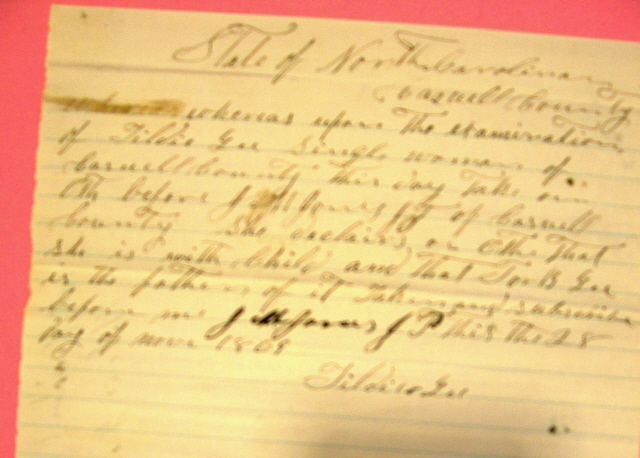 State of North Carolina
Caswell County
whereas upon the examination
of Tildie Gee single woman of
Caswell County this day take on
Oth before J M Jones JP of Caswell
County she declairs on Othe that
she is with Child and that Gee
is the father of it Taken and subscribe
before me J M Jones JP this the 28
day of nove
Gee